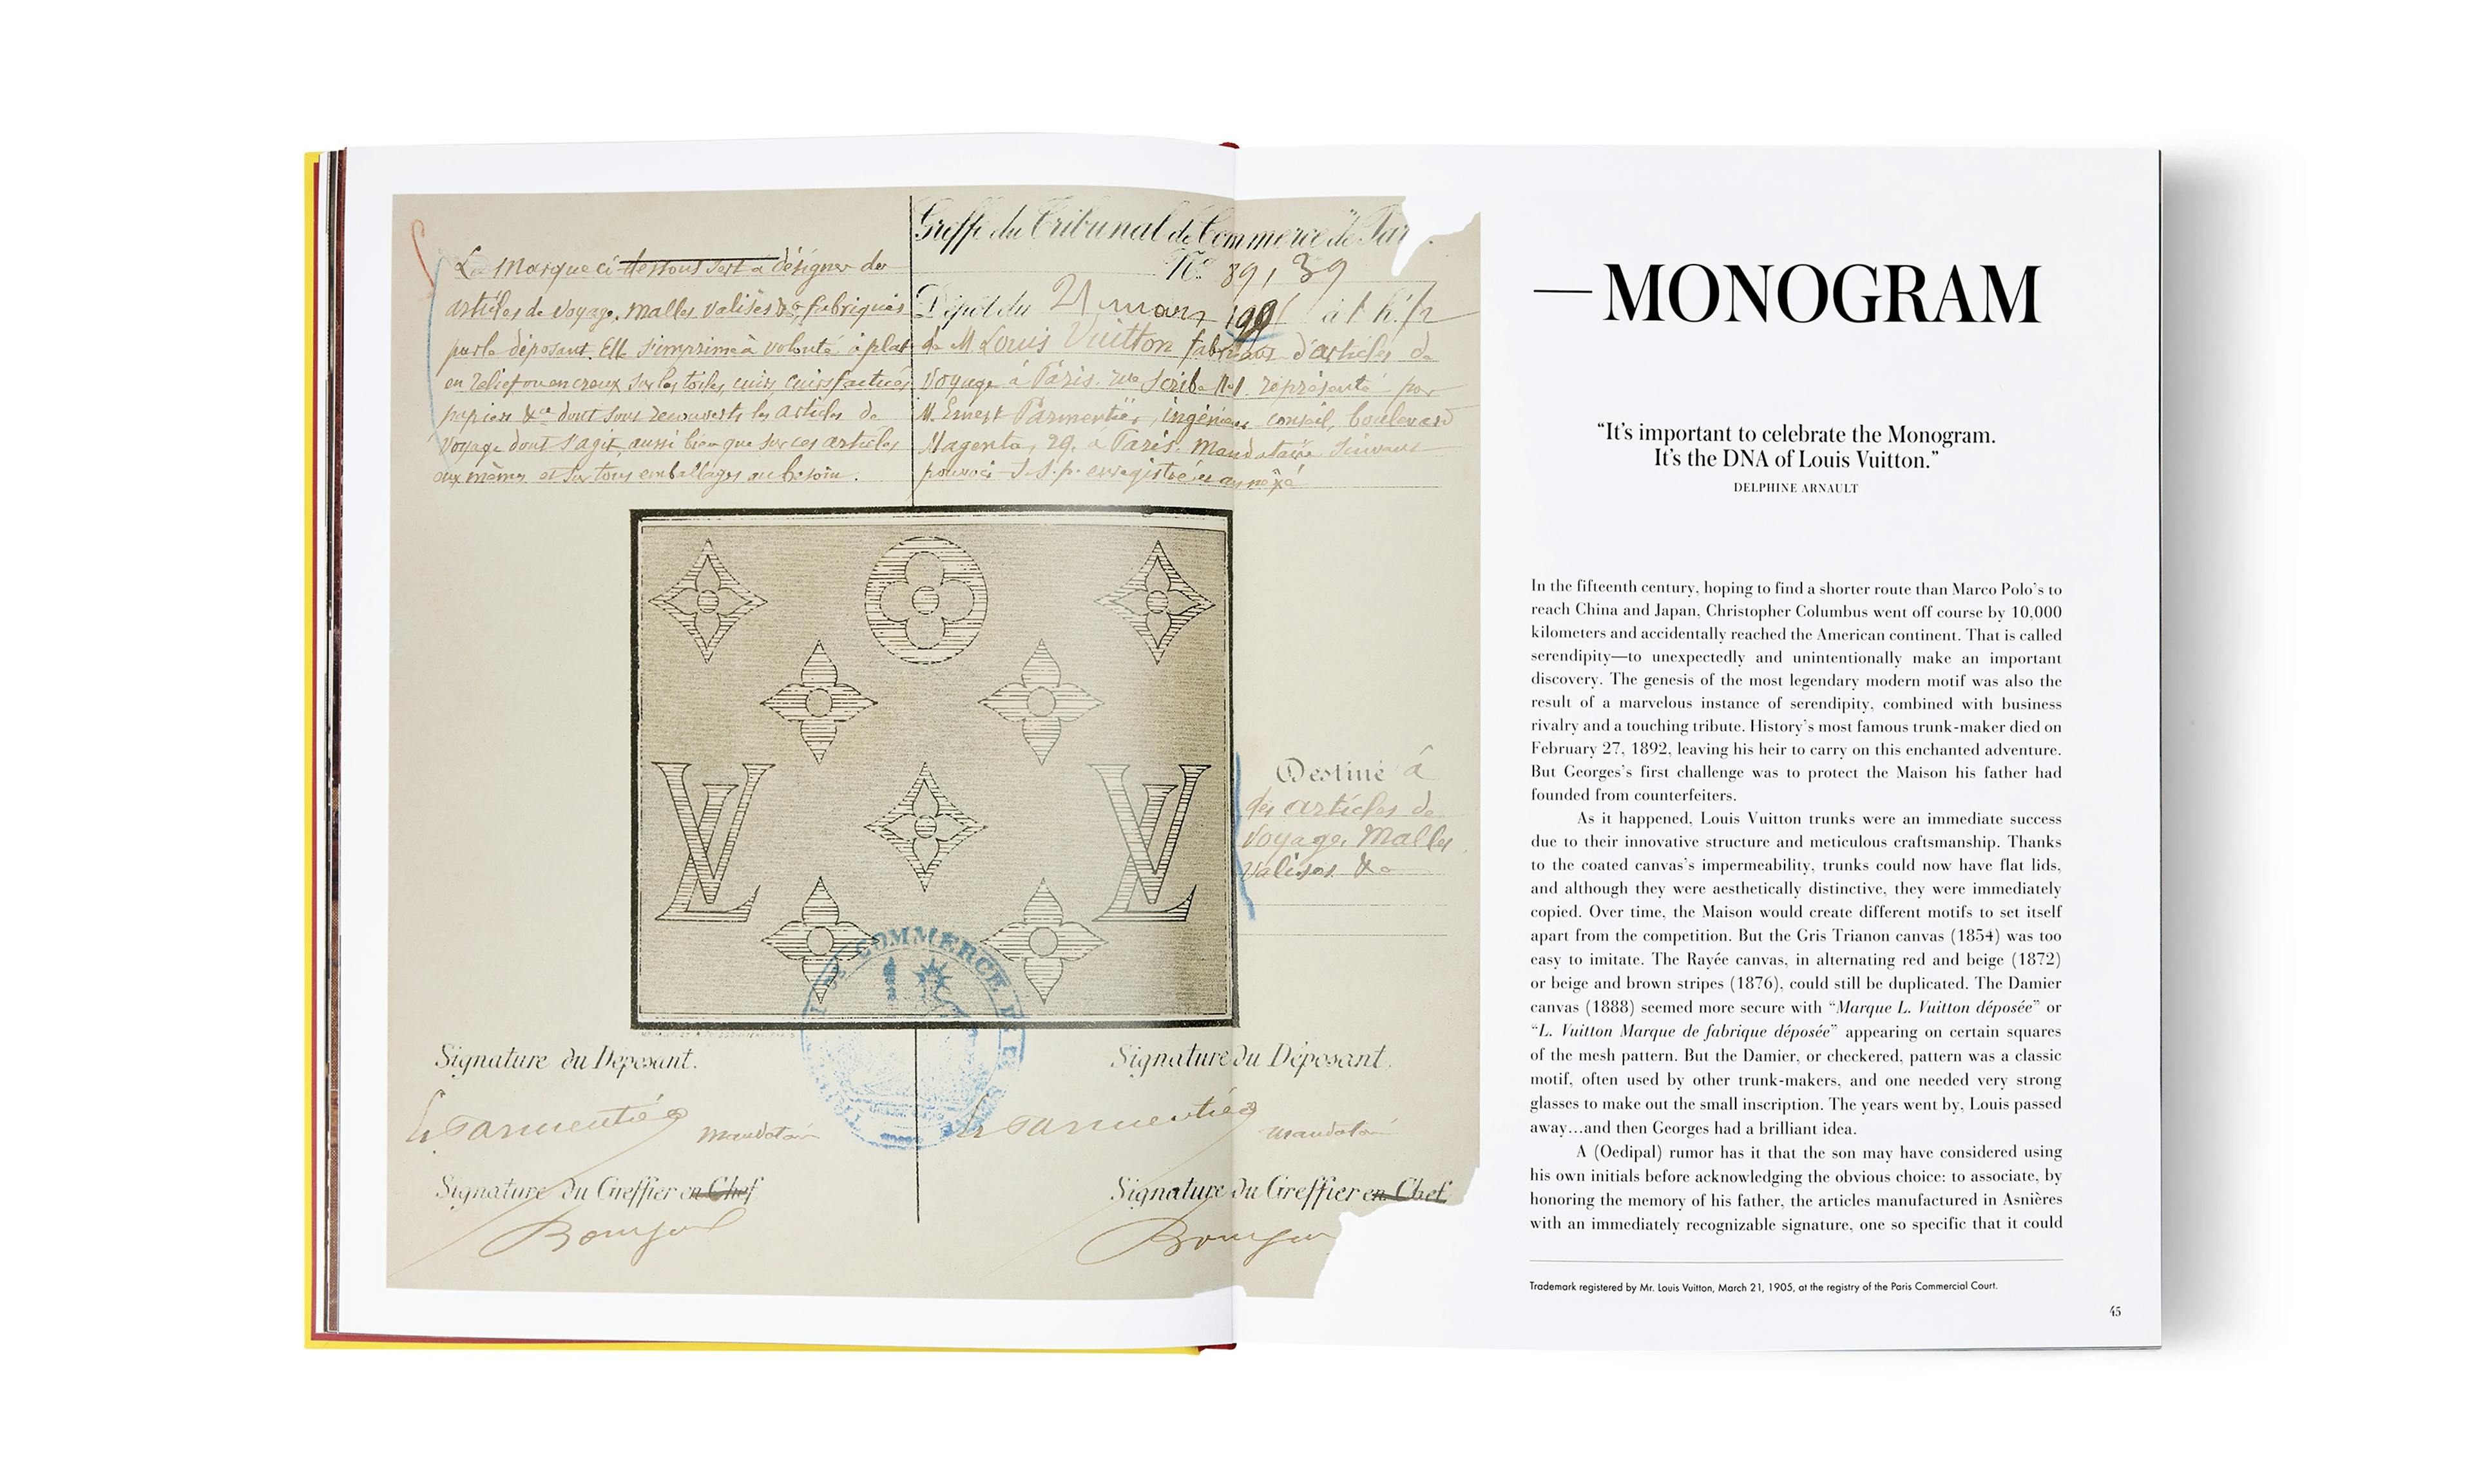 La Marque ci-dessous sert à désigner des
articles de voyage, malles valises &a fabriqués
par le déposant. Elle s'imprime à volonté à plat
en relief ou en creux sur les toiles, cuirs, cuirs factices
papiers &a dont sont recouverts les articles de
voyage dont s'agit, aussi bien que sur ces articles
eux mêmes et sur tous emballages au besoin.
Greffe du Tribunal de Commerce de Par
No 89,39
Dépôt du 21 mars
de M Louis Vuitton fabricant d'articles de
voyage à Paris. rue Scribe No 1. représenté par
M. Ernest Parmentier, ingénieur conseil, boulevard
Magenta, 29. à Paris. Mandataire suivant
pouvoir S.S.p. enregistré et annexé
LV LV
Destiné à
des articles de
voyage, Malles
valises &a
COMMERCE DE
Signature du Déposant.
E Parmentier mandataire
Signature du Greffier en Chef
Signature du Déposant.
E Parmentier mandataire
Signature du Greffier en Chef
—MONOGRAM
“It’s important to celebrate the Monogram.
It’s the DNA of Louis Vuitton.”
DELPHINE ARNAULT
In the fifteenth century, hoping to find a shorter route than Marco Polo’s to
reach China and Japan, Christopher Columbus went off course by 10,000
kilometers and accidentally reached the American continent. That is called
serendipity—to unexpectedly and unintentionally make an important
discovery. The genesis of the most legendary modern motif was also the
result of a marvelous instance of serendipity, combined with business
rivalry and a touching tribute. History’s most famous trunk-maker died on
February 27, 1892, leaving his heir to carry on this enchanted adventure.
But Georges’s first challenge was to protect the Maison his father had
founded from counterfeiters.
As it happened, Louis Vuitton trunks were an immediate success
due to their innovative structure and meticulous craftsmanship. Thanks
to the coated canvas’s impermeability, trunks could now have flat lids,
and although they were aesthetically distinctive, they were immediately
copied. Over time, the Maison would create different motifs to set itself
apart from the competition. But the Gris Trianon canvas (1854) was too
easy to imitate. The Rayée canvas, in alternating red and beige (1872)
or beige and brown stripes (1876), could still be duplicated. The Damier
canvas (1888) seemed more secure with “Marque L. Vuitton déposée” or
“L. Vuitton Marque de fabrique déposée” appearing on certain squares
of the mesh pattern. But the Damier, or checkered, pattern was a classic
motif, often used by other trunk-makers, and one needed very strong
glasses to make out the small inscription. The years went by, Louis passed
away…and then Georges had a brilliant idea.
A (Oedipal) rumor has it that the son may have considered using
his own initials before acknowledging the obvious choice: to associate, by
honoring the memory of his father, the articles manufactured in Asnières
with an immediately recognizable signature, one so specific that it could
Trademark registered by Mr. Louis Vuitton, March 21, 1905, at the registry of the Paris Commercial Court.
45